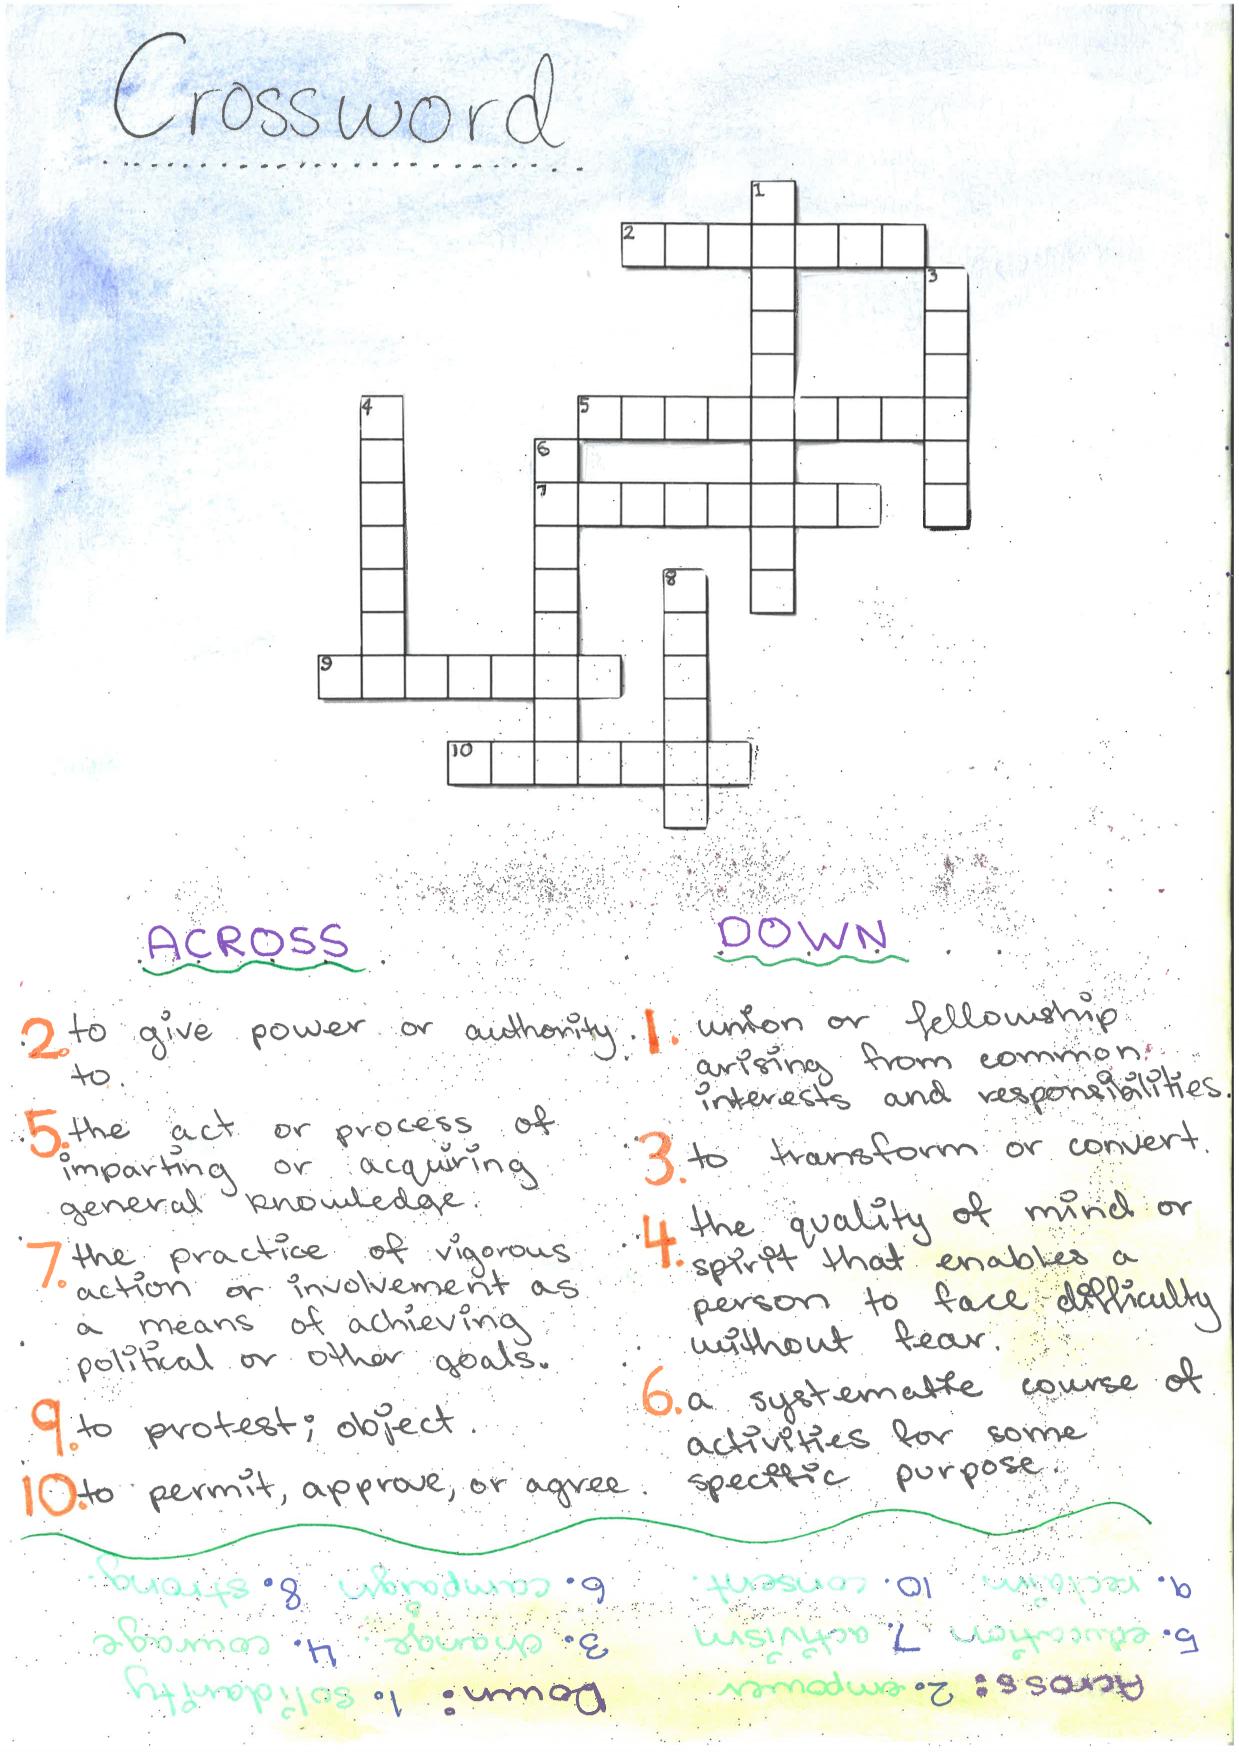 Crossword
1
2
3
4
5
6
7
8
9
10
ACROSS
2. to give power or authority
to.
5. the act or process of
imparting or acquiring
general knowledge.
7. the practice of vigorous
action or involvement as
a means of achieving
political or other goals.
9. to protest; object.
10. to permit, approve, or agree.
DOWN
1. union or fellowship
arising from common
interests and responsibilities.
3. to transform or convert.
4. the quality of mind or
spirit that enables a
person to face difficulty
without fear.
6. a systematic course of
activities for some
specific purpose.
Across: 2. empower
5. education 7. activism
9. reclaim 10. consent.
Down: 1. solidarity
3. change. 4. courage
6. campaign 8. strong.